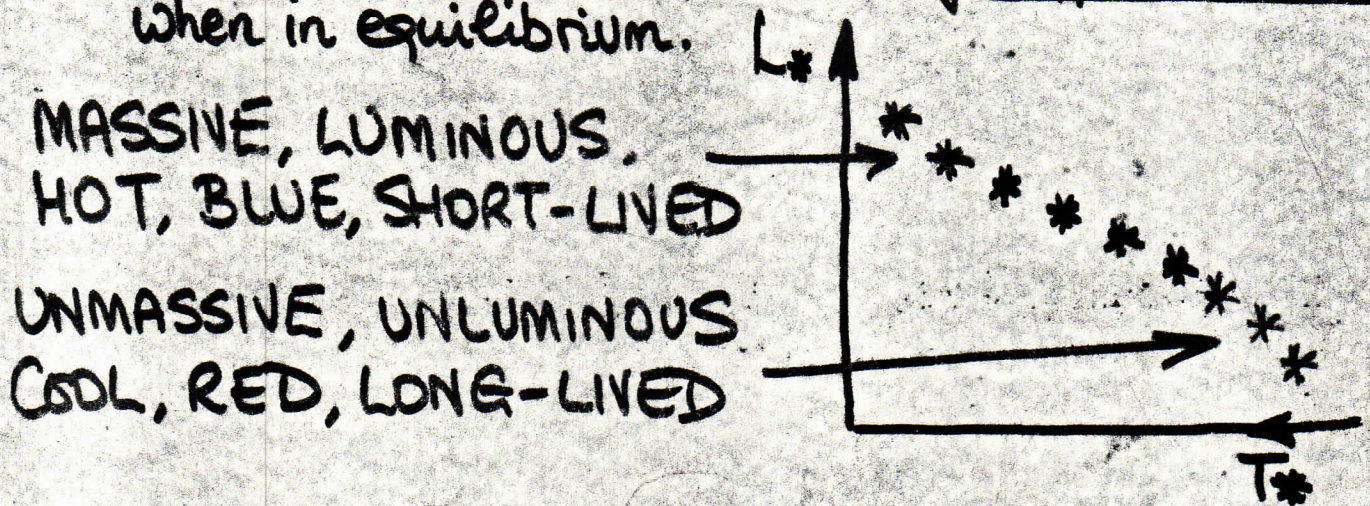 when in equilibrium.
L*
MASSIVE, LUMINOUS,
HOT, BLUE, SHORT-LIVED
UNMASSIVE, UNLUMINOUS
COOL, RED, LONG-LIVED
T*